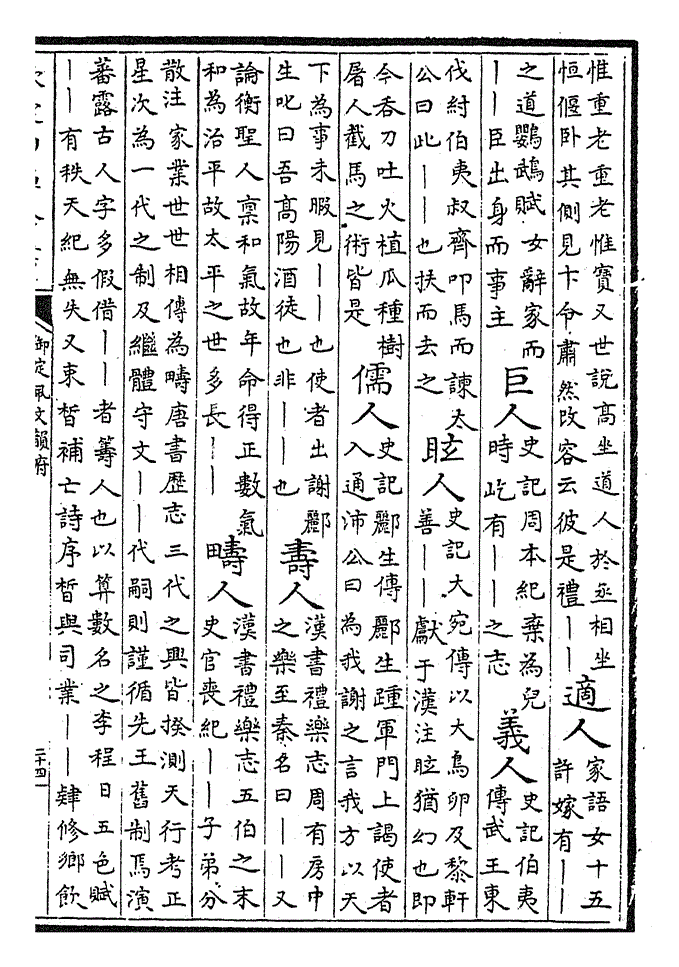 惟重老重老惟寳又世説髙坐道人於丞相坐
恒偃卧其側見卞令肅然改容云彼是禮丨丨
適人
家語女十五
許嫁有丨丨
之道鸚鵡賦女辭家而
丨丨臣出身而事主
巨人
史記周本紀棄為兒
時屹有丨丨之志
義人
史記伯夷
傳武王東
伐紂伯夷叔齊叩馬而諫太
公曰此丨丨也扶而去之
眩人
史記大宛傳以大鳥卵及黎軒
善丨丨獻于漢注眩猶幻也即
今吞刀吐火植瓜種樹
屠人截馬之術皆是
儒人
史記酈生傳酈生踵軍門上謁使者
入通沛公曰為我謝之言我方以天
下為事未暇見丨丨也使者出謝酈
生叱曰吾髙陽酒徒也非丨丨也
壽人
漢書禮樂志周有房中
之樂至秦名曰丨丨又
論衡聖人稟和氣故年命得正數氣
和為治平故太平之世多長丨丨
疇人
漢書禮樂志五伯之末
史官喪紀丨丨子弟分
散注家業世世相傳為疇唐書歴志三代之興皆揆測天行考正
星次為一代之制及繼體守文丨丨代嗣則謹循先王舊制焉演
蕃露古人字多假借丨丨者籌人也以算數名之李程日五色賦
丨丨有秩天紀無失又束晳補亡詩序晳與司業丨丨肄修鄉飲
御定佩文韻府
二十四